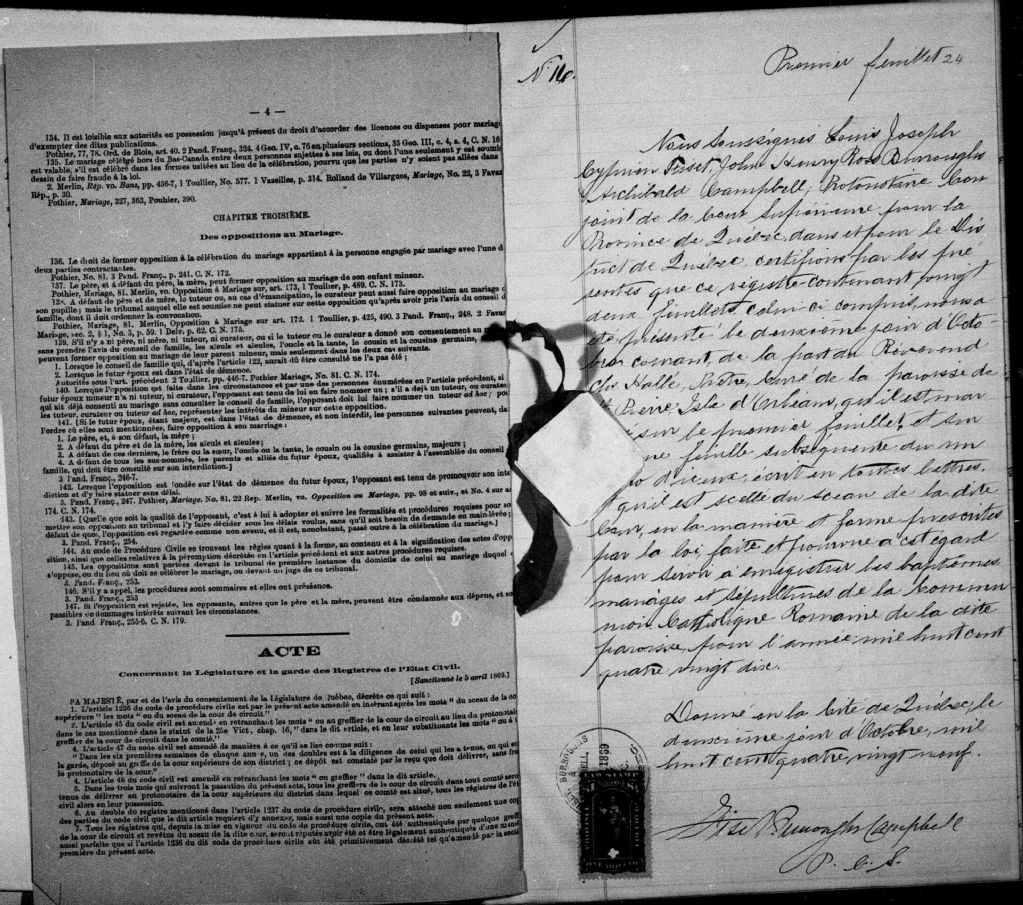 — 4 —
134. Il est loisible aux autorités en possession jusqu'à présent du droit d'accorder des licences ou dispenses pour mariage
d'exempter des dites publications.
Pothier, 77, 78. Ord. de Blois, art. 40. 2 Pand. Franç., 324. 4 Geo. IV, c. 76 en plusieurs sections, 35 Geo. III, c. 4, s. 4, C. N. 16
135. Le mariage célébré hors du Bas-Canada entre deux personnes sujettes à ses lois, ou dont l'une seulement y est soumis
est valable, s'il est célébré dans les formes usitées au lieu de la célébration, pourvu que les parties n'y soient pas allées dans
dessin de faire fraude à la loi.
2. Merlin, Rép. vo. Bans, pp. 436-7, 1 Toullier, No. 577. 1 Vaseilles, p. 314. Rolland de Villargues, Mariage, No. 22, 3 Favar
Rép., p. 30.
Pothier, Mariage, 327, 363, Pouhier, 390.
CHAPITRE TROISIÈME.
Des oppositions au Mariage.
136. Le droit de former opposition à la célébration du mariage appartient à la personne engagée par mariage avec l'une d
deux parties contractantes.
Pothier, No. 81. 3 Pand. Franç., p. 241. C. N. 172.
137. Le père, et à défaut du père, la mère, peut former opposition au mariage de son enfant mineur.
Pothier, Mariage, 81. Merlin, vo. Opposition à Mariage sur, art. 173, 1 Toullier, p. 489. C. N. 173.
138. A défaut de père et de mère, le tuteur ou, au cas d'émancipation, le curateur peut aussi faire opposition au mariage d
son pupille; mais le tribunal auquel elle est soumise ne peut statuer sur cette opposition qu'après avoir pris l'avis du conseil d
famille, dont il doit ordonner la convocation.
Pothier, Mariage, 81. Merlin, Opposition à Mariage sur art. 172. 1 Toullier, p. 425, 490. 3 Pand. Franç., 248. 2 Favar
Mariage, sec. 2, § 1, No. 3, p. 59. 1 Delv. p. 62. C. N. 175.
139. S'il n'y a ni père, ni mère, ni tuteur, ni curateur, ou si le tuteur ou le curateur a donné son consentement au
sans prendre l'avis du conseil de famille, les aïeuls et aïeules, l'oncle et la tante, le cousin et la cousine germains,
peuvent former opposition au mariage de leur parent mineur, mais seulement dans les deux cas suivants.
1. Lorsque le conseil de famille qui, d'après l'article 122, aurait dû être consulté ne l'a pas été;
2. Lorsque le futur époux est dans l'état de démence.
Autorités sous l'art. précédent. 2 Toullier, pp. 446-7. Pothier Mariage, No. 81. C. N. 174.
140. Lorsque l'opposition est faite dans les circonstances et par une des personnes énumérées en l'article précédent, si
futur époux mineur n'a ni tuteur, ni curateur, l'opposant est tenu de lui en faire nommer un; s'il a dejà un tuteur, ou curateur
qui ait déjà consenti au mariage sans consulter le conseil de famille, l'opposant doit lui faire nommer un tuteur ad hoc; pou
les tuteur, curateur ou tuteur ad hoc, représenter les intérêts du mineur sur cette opposition.
141. [Si le futur époux, étant majeur, est dans l'état de démence, et non interdit, les personnes suivantes peuvent, da
l'ordre où elles sont mentionnées, faire opposition à son mariage:
1. Le père, et, à son défaut, la mère;
2. A défaut du père et de la mère, les aïeuls et aïeules;
3. A défaut de ces derniers, le frère ou la sœur, l'oncle ou la tante, le cousin ou la cousine germains, majeurs;
4. A défaut de tous les sus-nommés, les parents et alliés du futur époux, qualifiés à assister à l'assemblée du conseil
famille, qui doit être consulté sur son interdiction.]
3 Pand. Franç., 246-7.
142. Lorsque l'opposition est fondée sur l'état de démence du futur époux, l'opposant est tenu de promouvoir son inter
diction et d'y faire statuer sans délai.
3. Pand. Franç., 247. Pothier, Mariage, No. 81. 22 Rep. Merlin, vo. Opposition au Mariage, pp. 98 et suiv., et No. 4 sur a
174. C. N. 174.
143. [Quelle que soit la qualité de l'opposant, c'est à lui à adopter et suivre les formalités et procédures requises pour so
mettre son opposition au tribunal et l'y faire décider sous les délais voulus, sans qu'il soit besoin de demande en main-lévée;
défaut de quoi, l'opposition est regardée comme non avenu, et il est, nonobstant, passé outre à la célébration du mariage.]
3. Pand. Franç., 254.
144. Au code de Procédure Civile se trouvent les règles quant à la forme, au contenu et à la signification des actes d'opp
sition, ainsi que celles relatives à la péremption décrétée en l'article précédent et aux autres procédures requises
145. Les oppositions sont portées devant le tribunal de première instance du domicile de celui au mariage duquel
s'oppose, ou du lieu où doit se célébrer le mariage, ou devant un juge de ce tribunal.
3. Pand. Franç., 253.
146. S'il y a appel, les procédures sont sommaires et elles ont préséance.
3. Pand. Franç., 253
147. Si l'opposition est rejetée, les opposants, autres que le père et la mère, peuvent être condamnés aux dépens, et so
passibles de dommages intérêts suivant les circonstances.
3. Pand Franç., 255-6. C. N. 179.
ACTE
Concernant la Législature et la garde des Registres de l'Etat Civil.
[Sanctionné le 5 avril 1869.]
SA MAJESTÉ, par et de l'avis du consentement de la législature de Québec, décrète ce qui suit:
1. L'article 1236 du code de procédure civile est par le présent acte amendé en insérant après les mots "du sceau de la co
supérieure" les mots "ou du sceau de la cour de circuit."
2. L'article 45 du code civil est amendé en retranchant les mots "ou au greffier de la cour de circuit au lieu du protonotai
dans le cas mentionné dans le statut de la 25e Vict., chap. 16," dans le dit article, et en leur substituants les mots "ou à
greffier de la cour de circuit dans le comté."
4. L'article 47 du code civil est amendé de manière à ce qu'il se lise comme suit:
"Dans les six premières semaines de chaque année, un des doubles est à la diligence de celui qui les a tenus, ou qui e
la garde, déposé au greffe de la cour supérieure de son district; ce dépôt est constaté par le reçu que doit délivrer, sans fra
le protonotaire de la cour."
4. L'article 48 du code civil est amendé en retranchant les mots "ou greffier" dans le dit article.
5. Dans les trois mois qui suivront la passation du présent acte, tous les greffiers de la cour de circuit dans tout comté sero
tenus de délivrer au protonotaire de la cour supérieure du district dans lequel ce comté est situé, tous les registres de l'é
civil alors en leur possession.
6. Au double du registre mentionné dans l'article 1237 du code de procédure civile, sera attaché non seulement une cop
des parties du code civil que le dit article requiert d'y annexer, mais aussi une copie du présent acte.
7. Tous les registres qui, depuis la mise en vigueur du code de procédure civile, ont été authentiqués par quelque greff
de la cour de circuit et revêtus du sceau de la dite cour, seront réputés avoir été et être légalement authentiqués d'une mani
aussi parfaite que si l'article 1236 du dit code de procédure civile eût été primitivement décrété tel qu'amendé par la secti
première du présent acte.
Premier feuillet 24
Nous Soussignés Louis Joseph
Cyprien Fiset, John Henry Ross Burroughs
Archibald Campbell, Protonotaire Con
joint de la Cour Supérieure pour la
Province de Québec, dans et pour le Dis
trict de Québec, certifions par les pré
sentes que ce registre contenant vingt
deux feuillets, celui-ci compris, nous a
été présenté le deuxième jour d'Octo-
bre courant, de la part du Révérend
Hallé, Prêtre, Curé de la paroisse de
St Pierre, Isle d'Orléans, qu'il est mar
sur le premier feuillet, et sur
feuille subséquente du un
écrit en toutes lettres,
qu'il est scellé du sceau de la dite
Cour, en la manière et forme prescrites
par la loi, faite et pourvue à cet égard
pour servir à enregistrer les baptêmes
mariages et sépultures de la Commu
nion Catholique Romaine de la dite
paroisse, pour l'année mil huit cent
quatre vingt dix.
Donné en la Cité de Québec, le
deuxième jour d'Octobre, mil
huit cent quatre vingt neuf
Fiset Burroughs Campbell
P. C. S.
BURROUGHS
LAW STAMP
ONE DOLLAR